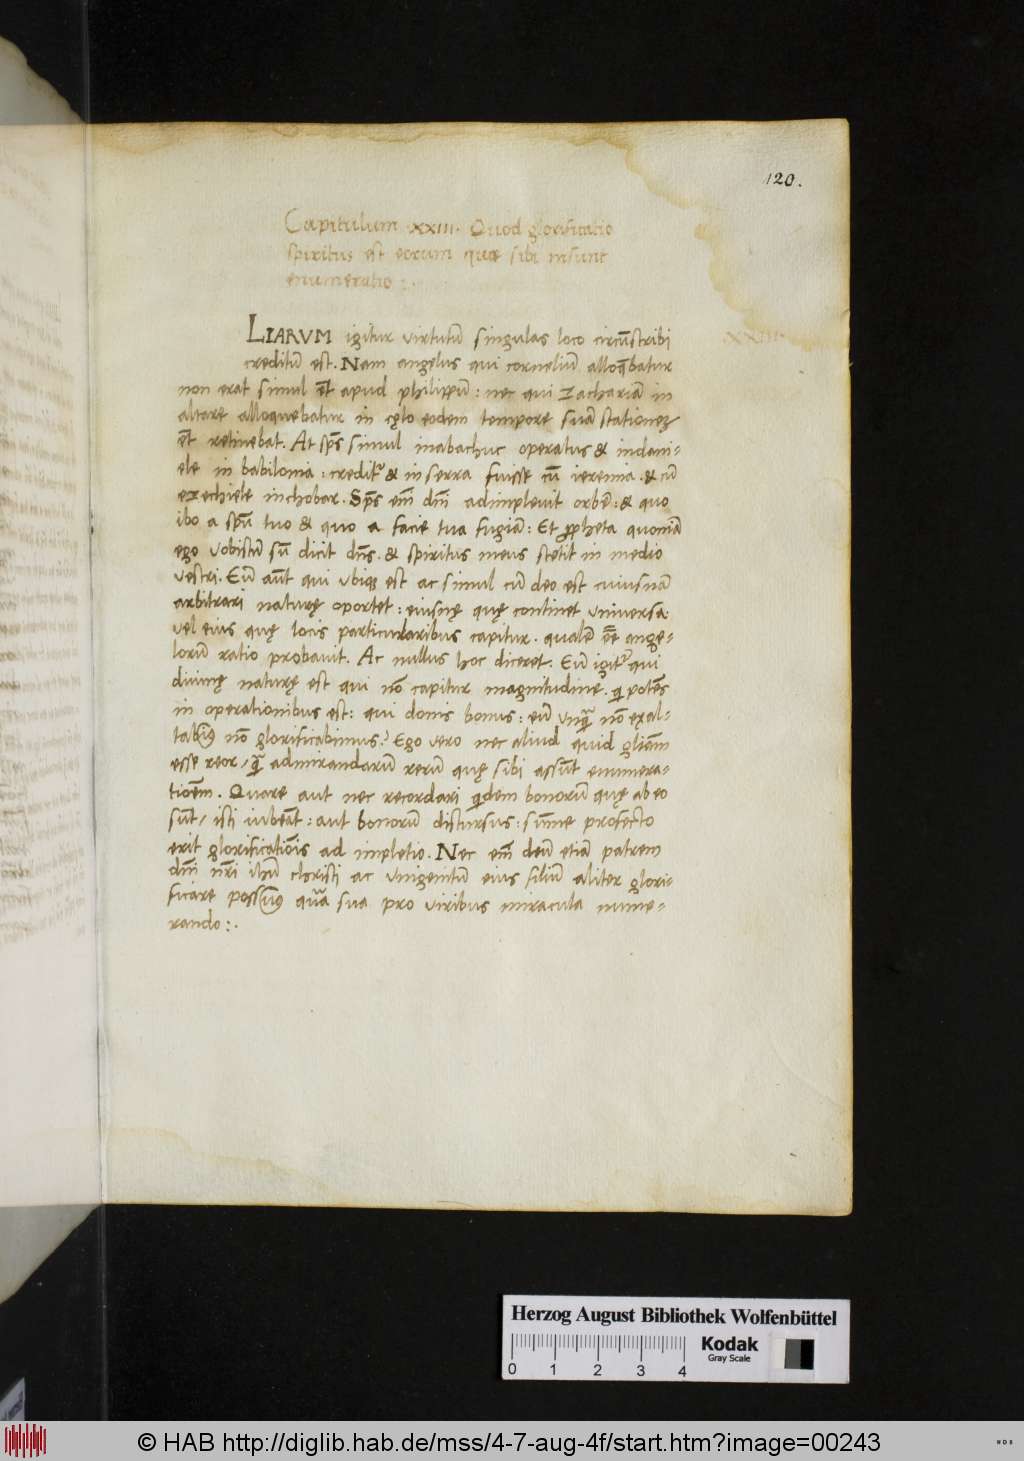 120.
Capitulum .XXIII. Quod glorificatio
spiritus est eorum quae sibi insunt
enumeratio :.
XXIII
LIARVM igitur virtutū singulas loco circūstribi
creditū est. Nam angelus qui corneliū alloq̄batur
non erat simul et̄ apud philippū : nec qui Zachariā in
altare alloquebatur in cęlo eodem tempore suā stationeʒ
et̄ retinebat. At sp̄s simul inabachuc operatus & indani-
ele in babilonia : credit̄ & in serra fuisse cū ieremia . & cū
eZechiele inchobar. Sp̄s em̄ dn̄i adimplevit orbē : & quo
ibo a spū tuo & quo a facie tua fugiā : Et ꝓpheta quoniā
ego vobistū sū dicit dn̄s . & spiritus meus stetit in medio
vestri. Eū aūt qui vbiqꝫ est ac simul cū deo est cuiusnā
arbitrari naturę oportet : eiusnę quę continet vniversa
vel eius quę locis particularibus capitur . qualē ēē ange-
lorū ratio probavit. Ac nullus hoc diceret. Eū igit̄ qui
divinę naturę est qui nō capitur magnitudine . ꝗ potēs
in operationibus est : qui donis bonus : eū vnꝗ̄ nō exal-
tabimꝰ nō glorificabimus? Ego vero nec aliud quid gliām
esse reor / ꝗ̄ admirandarū rerū quę sibi assūt enumera-
tiōem . Quare aut nec recordari ꝗdem bonorū quę ab eo
sūt / isti iubeāt : aut bonorū distursus : sūme profecto
erit glorificatiōis ad impletio . Nec em̄ deū etiā patrem
dn̄i nr̄i ihū christi ac vnigenitū eius filiū aliter glori-
ficare possumꝰ quā sua pro viribus miracula nume-
rando :.
Herzog August Bibliothek Wolfenbüttel
Kodak
Gray Scale
0 1 2 3 4
© HAB http://diglib.hab.de/mss/4-7-aug-4f/start.htm?image=00243